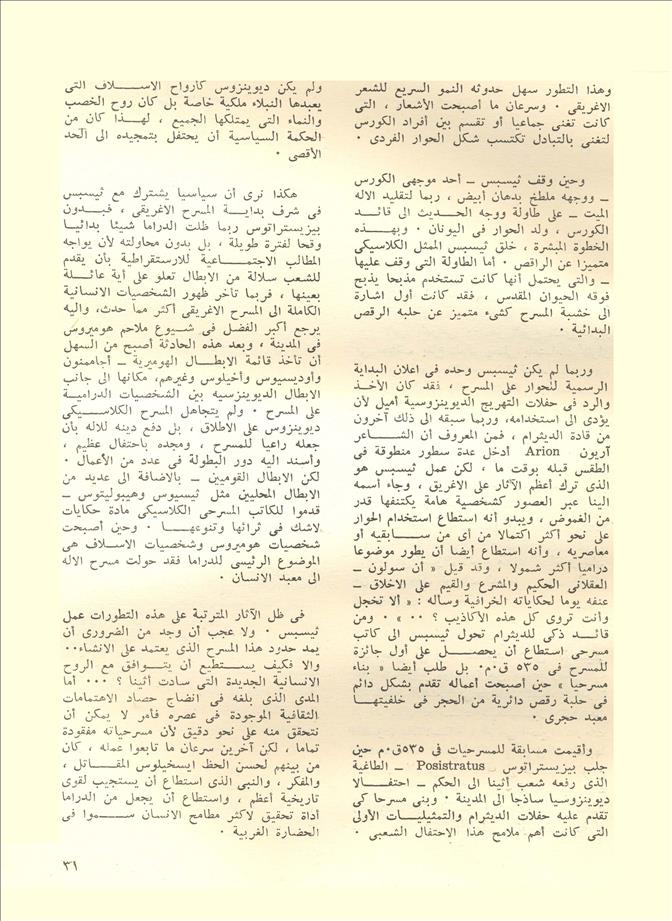 وهذا التطور سهل حدوثه النمو السريع للشعر
الاغريقى ٠ وسرعان ما أصبحت الأشعار ، التى
كانت تغنى جماعيا أو تقسم بين أفراد الكورس
لتغنى بالتبادل تكتسب شكل الحوار الفردى ٠
وحين وقف ثيسبس ــ أحد موجهى الكورس
ــ ووجهه ملطخ بدهان أبيض ، ربما لتقليد الاله
الميت ــ على طاولة ووجه الحديث الى قائد
الكورس ، ولد الحوار فى اليونان ٠ وبهذه
الخطوة المبشرة ، خلق ثيسبس الممثل الكلاسيكى
متميزا عن الراقص ٠ أما الطاولة التى وقف عليها
ــ والتى يحتمل أنها كانت تستخدم مذبحا يذبح
فوقه الحيوان المقدس ، فقد كانت أول اشارة
الى خشبة المسرح كشىء متميز عن حلبة الرقص
البدائية ٠
وربما لم يكن ثيسبس وحده فى اعلان البداية
الرسمية للحوار على المسرح ، فقد كان الأخذ
والرد فى حفلات التهريج الديوينزوسية أميل لأن
يؤدى الى استخدامه، وربما سبقه الى ذلك آخرون
من قادة الديثرام ، فمن المعروف أن الشاعر
آريون Arion أدخل عدة سطور منطوقة فى
الطقس قبله بوقت ما ، لكن عمل ثيسبس هو
الذى ترك أعظم الآثار على الاغريق ، وجاء أسمه
الينا عبر العصور كشخصية هامة يكتنفها قدر
من الغموض ، ويبدو أنه استطاع استخدام الحوار
على نحو أكثر اكتمالا من أى من سابقيه أو
معاصريه ، وأنه استطاع أيضا أن يطور موضوعا
دراميا أكثر شمولا ، وقد قيل « أن سولون ــ
العقلانى الحكيم والمشرع والقيم على الاخلاق ــ
عنفه يوما لحكاياته الخرافية وسأله : « ألا تخجل
وأنت تروى كل هذه الأكاذيب ؟ ٠٠ » ٠ ومن
قائد ذكى للديثرام تحول ثيسبس الى كاتب
مسرحى استطاع أن يحصل على أول جائزة
للمسرح فى ٥٣٥ ق٠م٠ بل طلب أيضا « بناء
مسرحيا » حين أصبحت أعماله تقدم بشكل دائم
فى حلبة رقص دائرية من الحجر فى خلفيتها
معبد حجرى ٠
وأقيمت مسابقة للمسرحيات فى ٥٣٥ق٠م حين
جلب بيزيستراتوس Posistratus ــ الطاغية
الذى رفعه شعب أثينا الى الحكم ــ احتفالا
ديوينزوسيا ساذجا الى المدينة ٠ وبنى مسرحا كى
تقدم عليه حفلات الديثرام والتمثيليات الأولى
التى كانت أهم ملامح هذا الاحتفال الشعبى ٠
ولم يكن ديوينزوس كأرواح الاسلاف التى
يعبدها النبلاء ملكية خاصة بل كان روح الخصب
والنماء التى يمتلكها الجميع ، لهذا كان من
الحكمة السياسية أن يحتفل بتمجيده الى الحد
الأقصى ٠
هكذا نرى أن سياسيا يشترك مع ثيسبس
فى شرف بداية المسرح الاغريقى ، فبدون
بيزيستراتوس ربما ظلت الدراما شيئا بدائيا
وقحا لفترة طويلة ، بل بدون محاولته لأن يواجه
المطالب الاجتماعية للارستقراطية بأن يقدم
للشعب سلالة من الأبطال تعلو على أية عائلة
بعينها ، فربما تأخر ظهور الشخصيات الانسانية
الكاملة الى المسرح الاغريقى أكثر مما حدث، واليه
يرجع أكبر الفضل فى شيوع ملاحم هوميروس
فى المدينة ، وبعد هذه الحادثة أصبح من السهل
أن تأخذ قائمة الابطال الهوميرية ــ أجاممنون
وأوديسيوس وأخيلوس وغيرهم، مكانها الى جانب
الابطال الديوينزسيه بين الشخصيات الدرامية
على المسرح ٠ ولم يتجاهل المسرح الكلاسيكى
ديوينزوس على الاطلاق ، بل دفع دينه للاله بأن
جعله راعيا للمسرح ، ومجده بأحتفال عظيم ،
وأسند اليه دور البطولة فى عدد من الأعمال ٠
لكن الابطال القوميين ــ بالاضافة الى عديد من
الابطال المحليين مثل ثيسيوس وهيبوليتوس ــ
قدموا للكاتب المسرحى الكلاسيكى مادة حكايات
لاشك فى ثرائها وتنوعها ٠ وحين أصبحت
شخصيات هوميروس وشخصيات الاسلاف هى
الموضوع الرئيسى للدراما فقد حولت مسرح الاله
الى معبد الانسان ٠
فى ظل الآثار المترتبة على هذه التطورات عمل
ثيسبس ٠ ولا عجب أن وجد من الضرورى أن
يمد حدود هذا المسرح الذى يعتمد على الانشاء٠٠
والا فكيف يستطيع أن يتوافق مع الروح
الانسانية الجديدة التى سادت أثينا ؟ ٠٠٠ أما
المدى الذى بلغه فى انضاج حصاد الاهتمامات
الثقافية الموجودة فى عصره فأمر لا يمكن أن
نتحقق منه على نحو دقيق لأن مسرحياته مفقودة
تماما ، لكن آخرين سرعان ما تابعوا عمله ، كان
من بينهم لحسن الحظ ايسخيلوس المقاتل ،
والمفكر ، والنبى الذى استطاع أن يستجيب لقوى
تاريخية أعظم ، واستطاع أن يجعل من الدراما
أداة تحقيق لأكثر مطامح الانسان سموا فى
الحضارة الغربية ٠
٣١